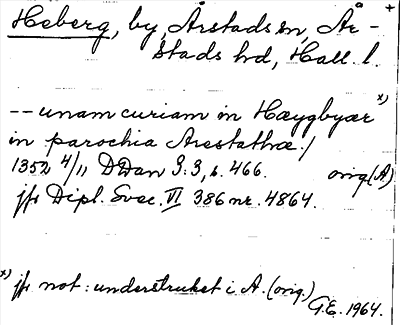 Heberg, by, Årstads sn, År- +
stads hd, Hall. l.
-- unam curiam in Hæygbyær x)
in parochia Arestathæ./
1352 4/11 DDan 3:3, s. 466. orig (A)
jfr Dipl. Svec. VI 386 nr. 4864.
x) jfr not: understruket i A. (orig.)
G.E. 1964.